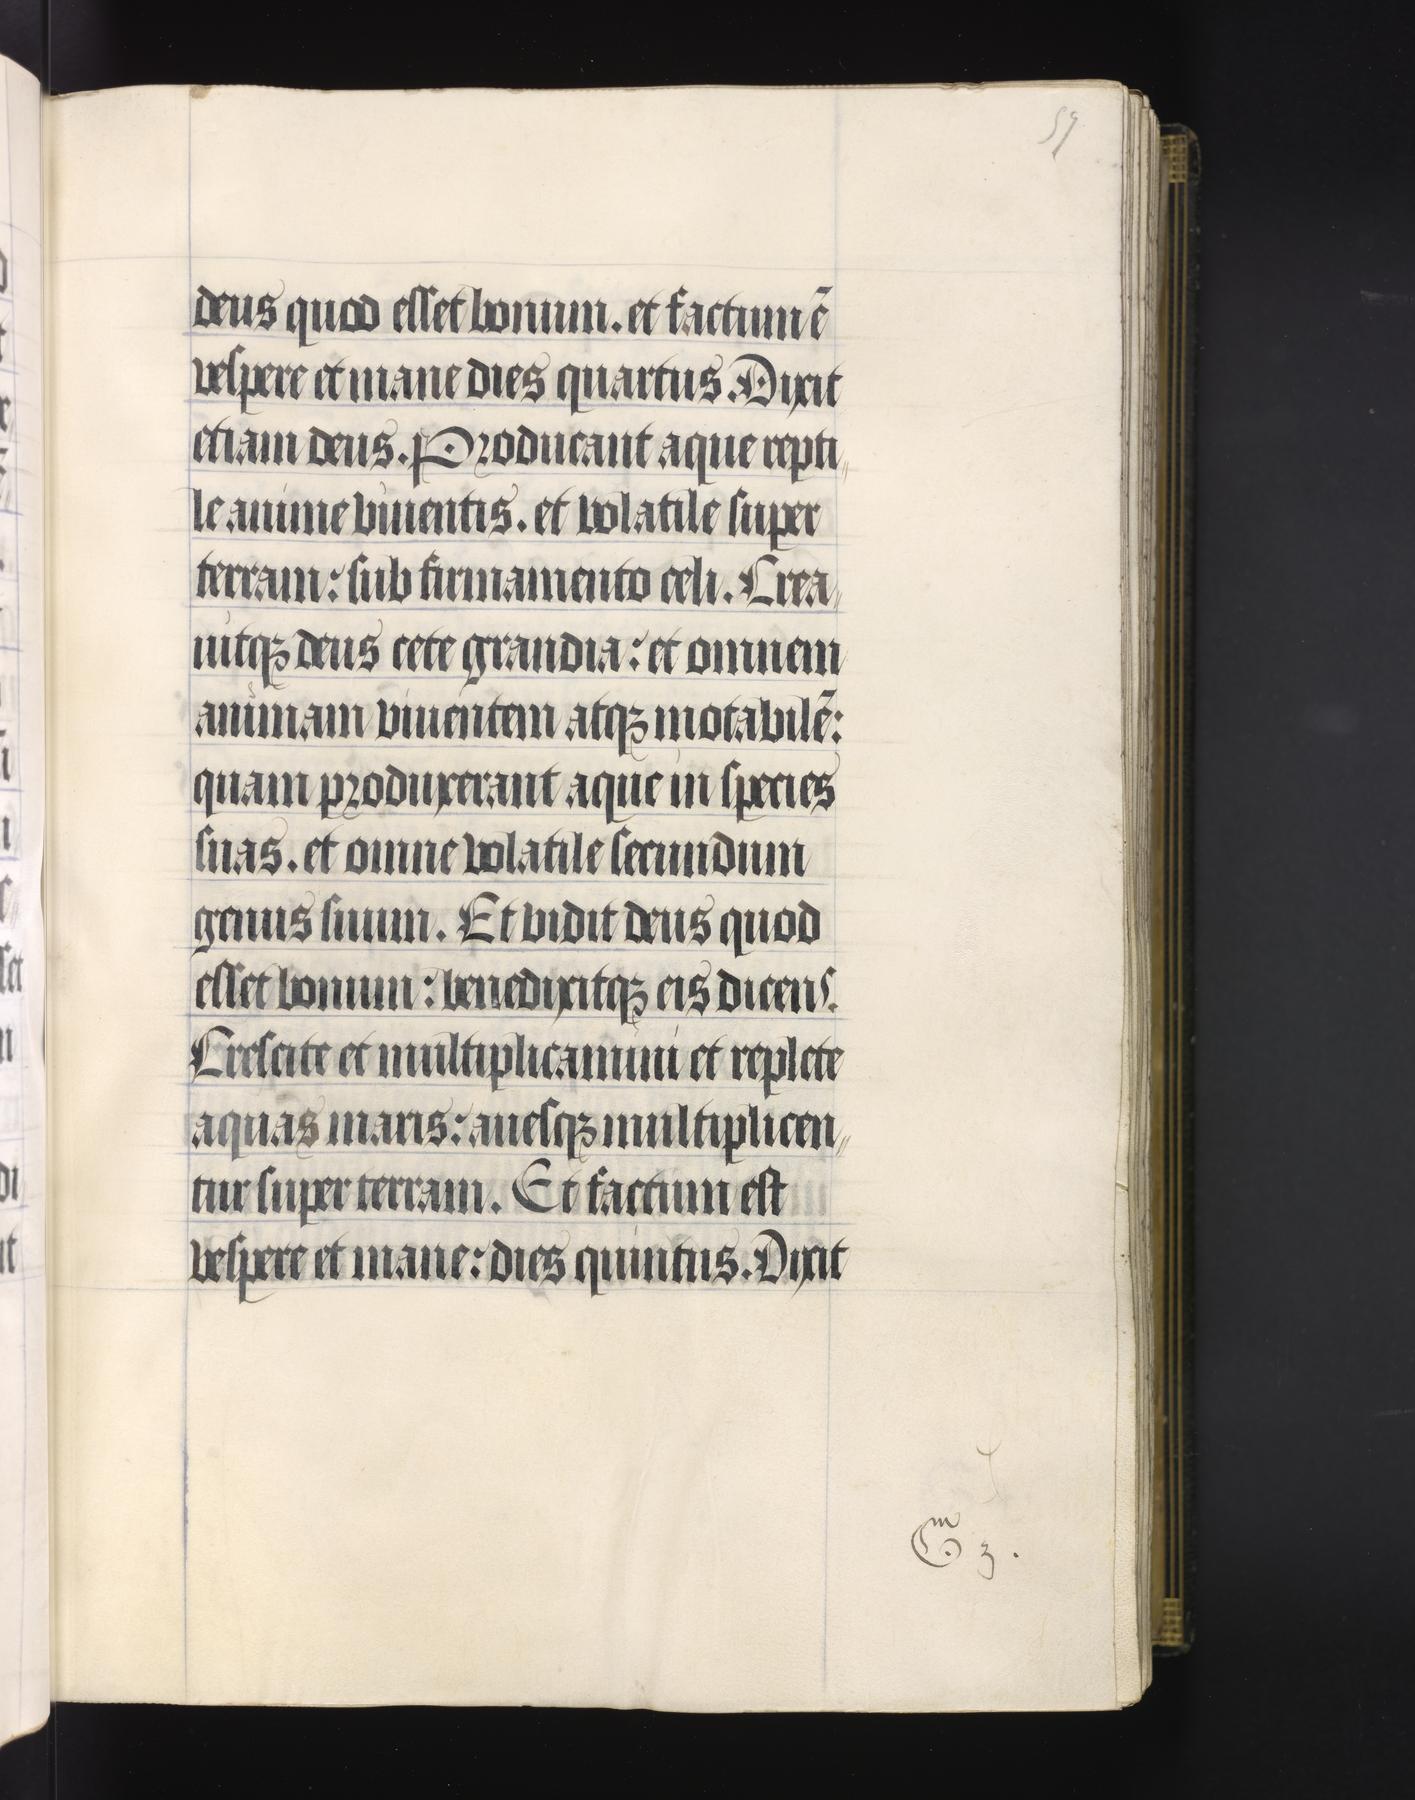 59
deus quod esset bonum. et factum ē
vespere et mane dies quartus. Dixit
etiam deus. Producant aque repti〃
le anime viuentis. et volatile super
terram: sub firmamento celi. Crea〃
uitqꝫ deus cete grandia: et omnem
animam viuentem atqꝫ motabilē:
quam produxerant aque in species
suas. et omne volatile secundum
genus suum. Et vidit deus quod
esset bonum: benedixitqꝫ eis dicens.
Crescite et multiplicamini et replete
aquas maris: auesqꝫ multiplicen〃
tur super terram. Et factum est
vespere et mane: dies quintus. Dixit